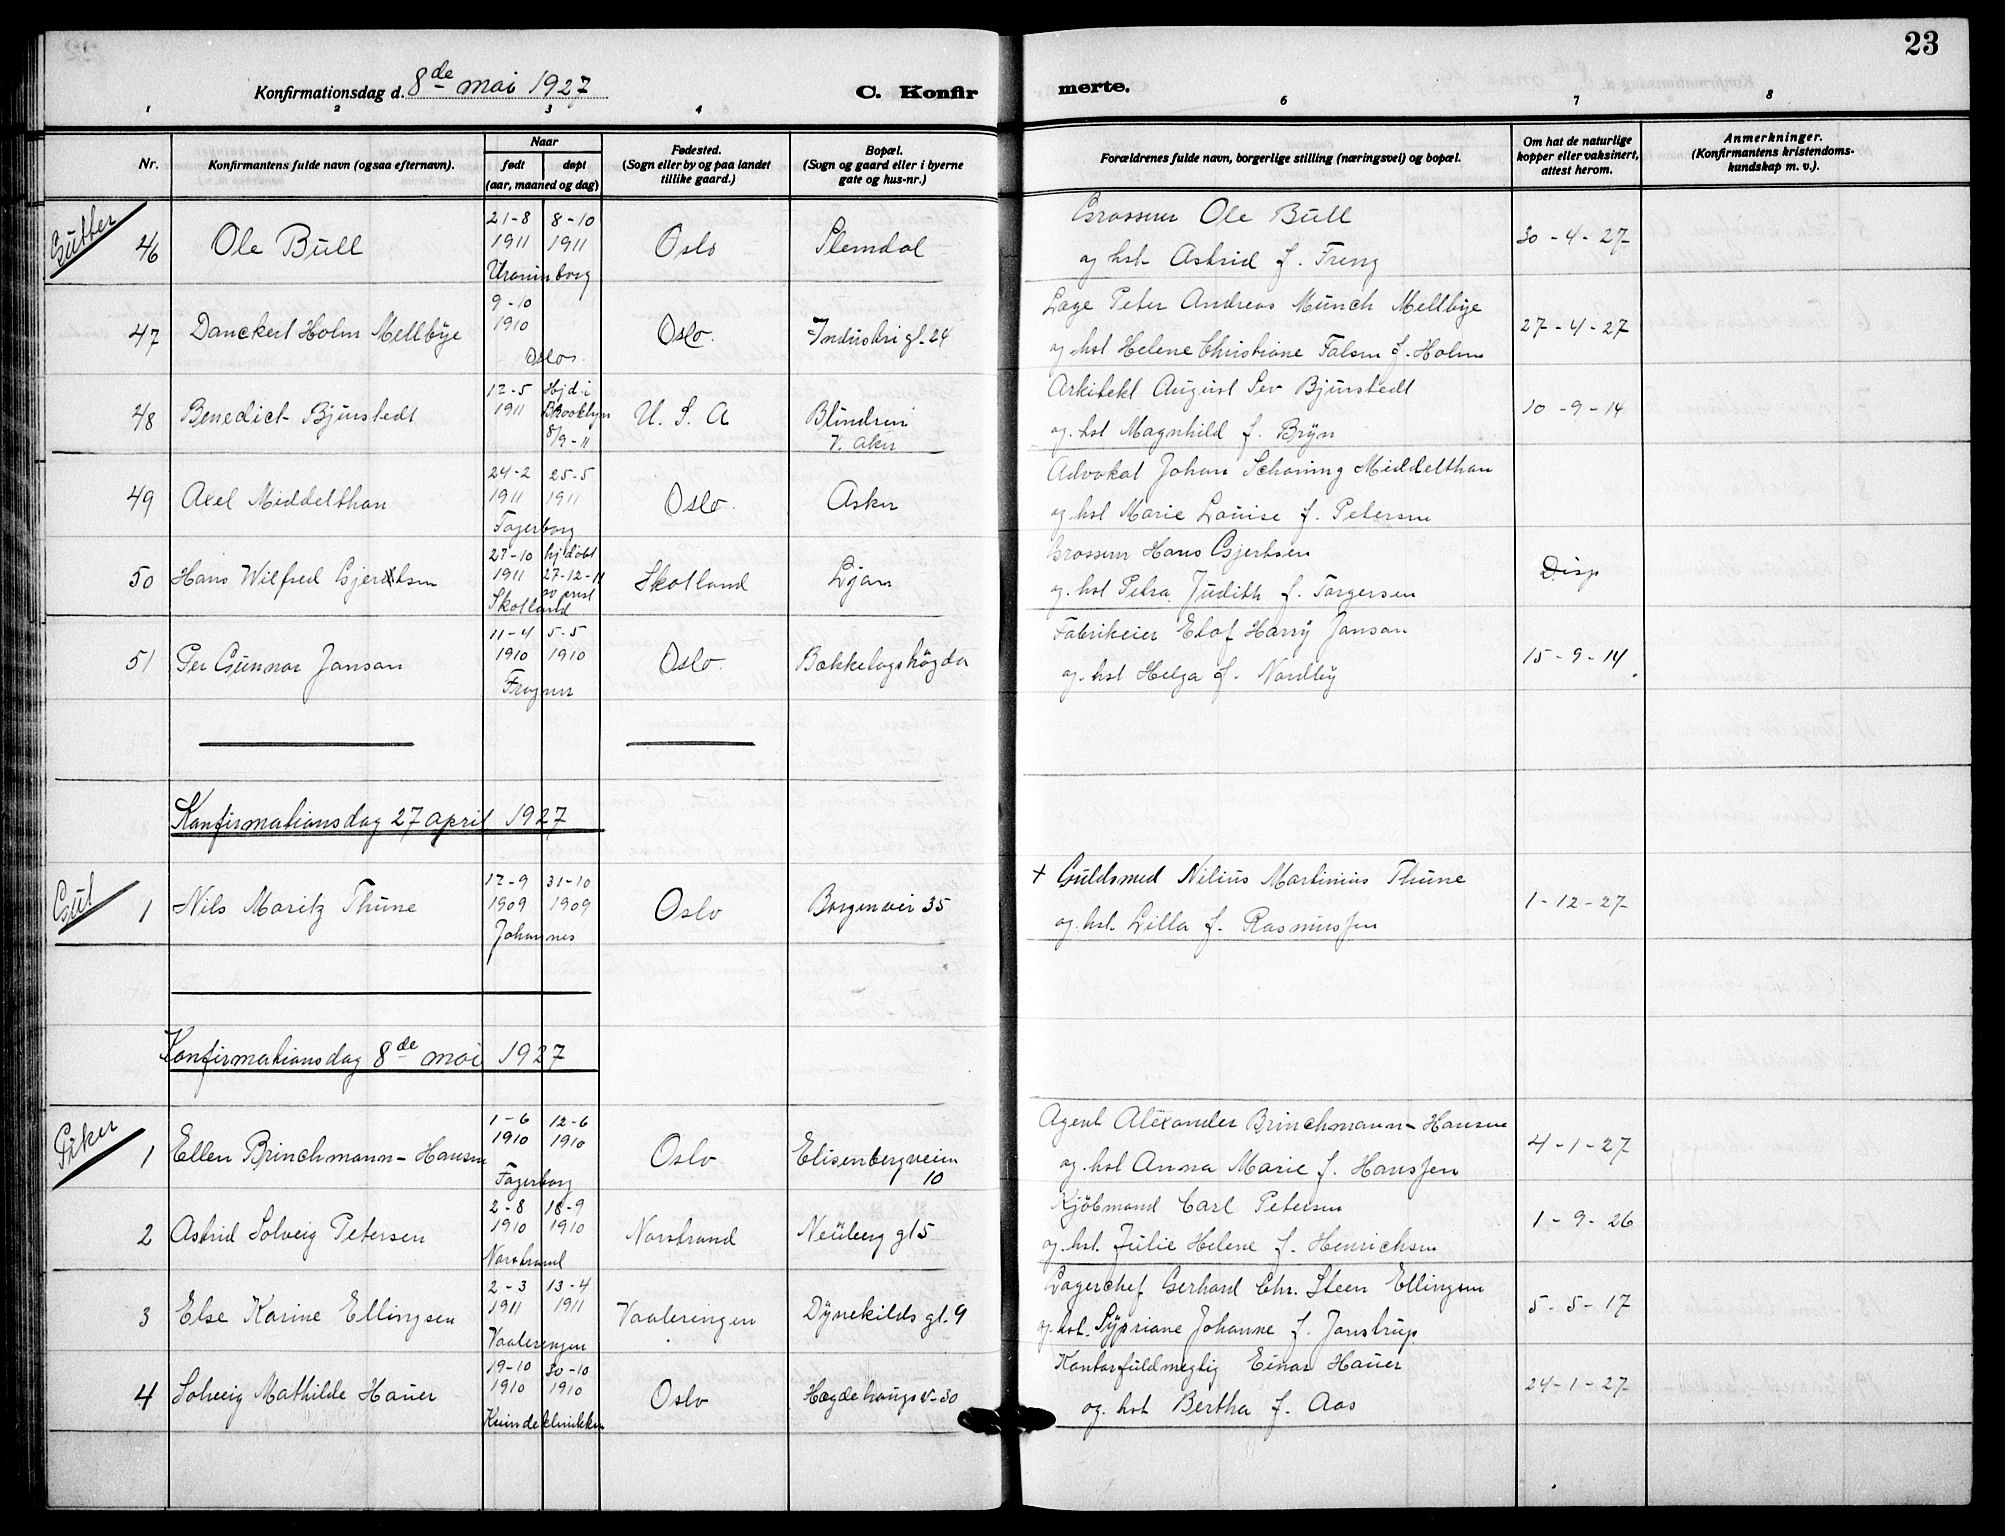 23
Konfirmationsdag d. 8de mai 1927
C. Konfirmerte.
1 2 3 4 6 7 8
Nr.
Konfirmantens fulde navn (ogsaa efternavn).
Naar
født døpt
(aar, maaned og dag)
Fødested.
(Sogn eller by og paa landet
tillike gaard.)
Bopæl.
(Sogn og gaard eller i byerne
gate og hus-nr.)
Forældrenes fulde navn, borgerlige stilling (næringsvei) og bopæl.
Om hat de naturlige
kopper eller vaksinert,
attest herom.
Anmerkninger.
(Konfirmantens kristendoms-
kundskap m. v.).
Gutter
46 Ole Bull 21-8 1911 8-10 1911 Uranienborg Oslo Slemdal
Grosserer Ole Bull
og hst. Astrid f. Freng
30-4-27
47 Danckert Holm Mellbye 9-10 1910 Oslo Oslo. Industri gt. 24
Læge Peter Andreas Munch Mellbye
og hst Helene Christiane Falsen f. Holm
27-4-27
48 Benedict Bjurstedt 12-5 1911 Hjd i Brooklyn 8/9-11 U. S. A Blindern V. Aker
Arkitekt August Sev Bjurstedt
og hst Magnhild f. Bryn
10-9-14
49 Axel Middelthon 24-2 1911 25-5 1911 Fagerborg Oslo. Asker
Advokat Johan Schøning Middelthon
og hst Marie Louise f. Petersen
50 Hans Wilfred Gjertsen 27-10 1911 hj døbt 27-12-11 Skotland Skotland Ljan
Grosserer Hans Gjertsen
og hst Petra Judith f. Torgersen
Disp
51 Per Gunnar Janson 11-4 1910 5-5 1910 Frogner Oslo. Bækkelagshøgda
Fabrikeier Elof Harry Janson
og hst Helga f. Nordby
15-9-14
Konfirmationsdag 27 april 1927
Gut
1 Nils Moritz Thune 12-9 1909 31-10 1909 Johannes Oslo Borgenvei 35
+ Guldsmed Nilius Martinius Thune
og hst. Lilla f. Rasmussen
1-12-27
Konfirmationsdag 8de mai 1927
Piker
1 Ellen Brinchmann-Hansen 1-6 1910 12-6 1910 Fagerborg Oslo Elisenbergveien 10
Agent Alexander Brinchmann-Hansen
og hst Anna Marie f. Hanssen
4-1-27
2 Astrid Solveig Petersen 2-8 1910 18-9 1910 Norstrand Norstrand Neuberg gt 5
Kjøbmand Carl Petersen
og hst. Julie Helene f. Henrichsen
1-9-26
3 Else Karine Ellingsen 2-3 1911 13-4 1911 Vaalerengen Vaaleringen Dynekilds gt. 9
Lagerchef Gerhard Chr. Steen Ellingsen
og hst. Sypriane Johanne f. Janstrup
5-5-17
4 Solveig Mathilde Hauer 19-10 1910 30-10 1910 Kvindeklinikken Oslo Hægdehaugs v. 30
Kontorfuldmegtig Einar Hauer
og hst Bertha f. Aas
24-1-27